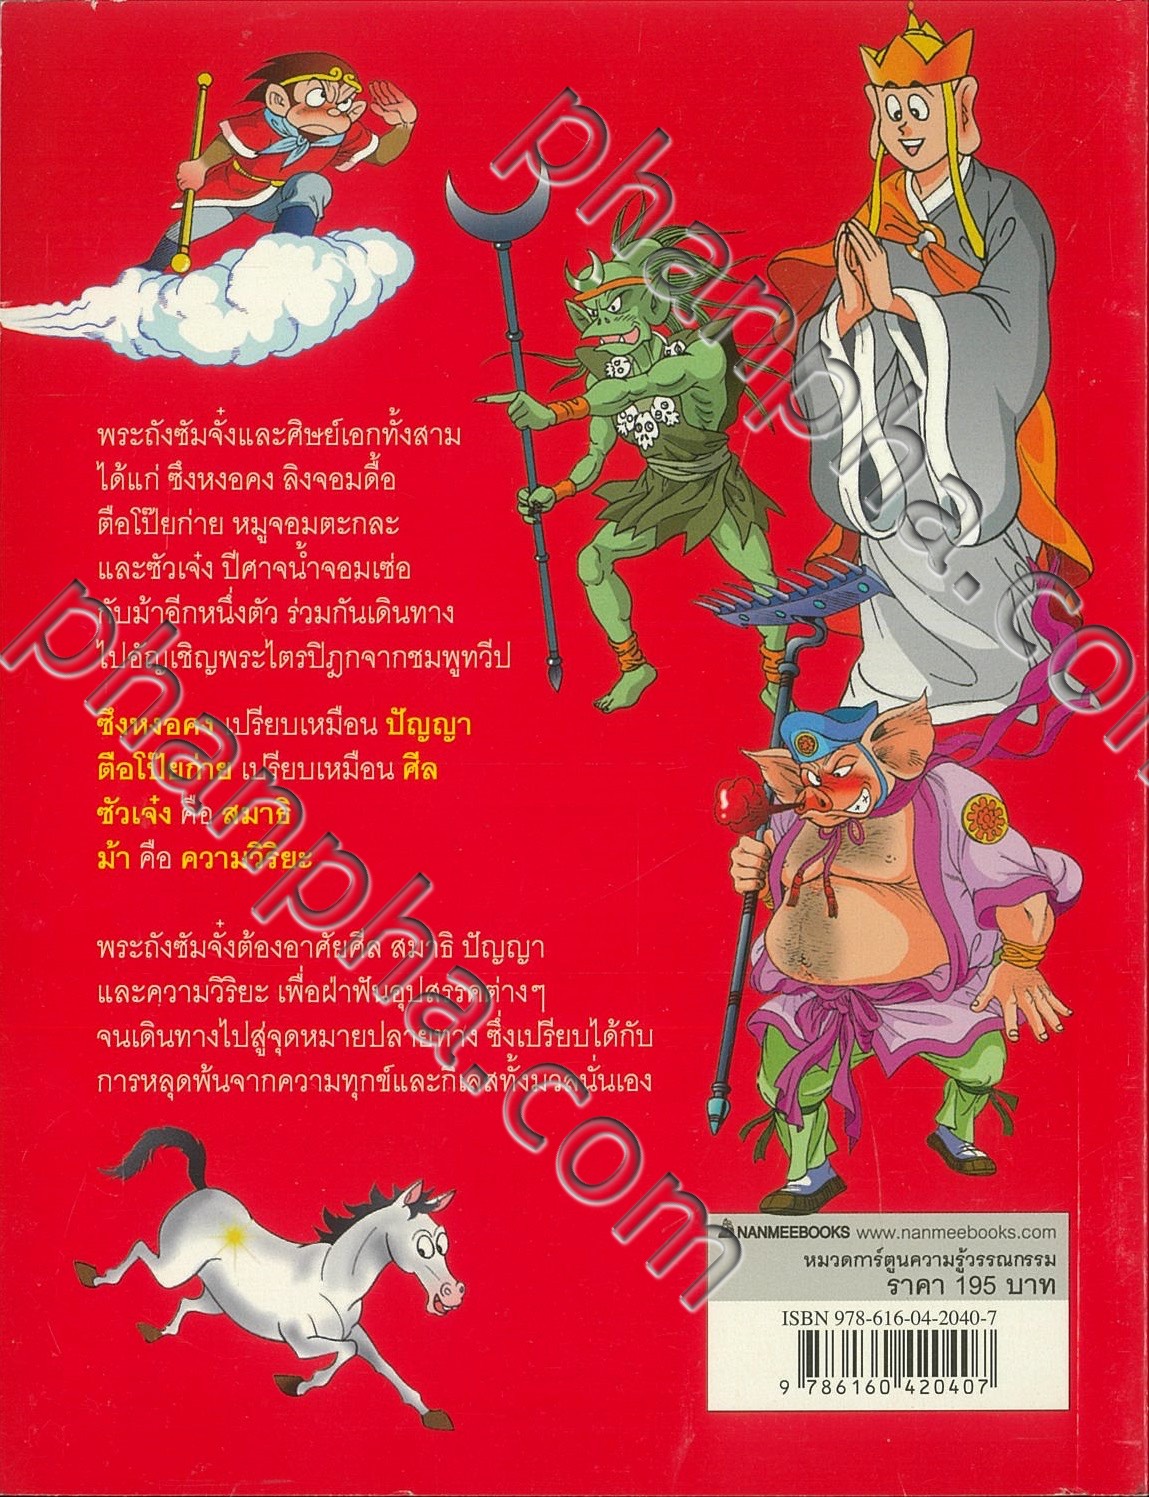 พระถังซัมจั๋งและศิษย์เอกทั้งสาม
ได้แก่ ซึงหงอคง ลิงจอมดื้อ
ตือโป๊ยก่าย หมูจอมตะกละ
และซัวเจ๋ง ปีศาจน้ำจอมเซ่อ
กับม้าอีกหนึ่งตัว ร่วมกันเดินทาง
ไปอัญเชิญพระไตรปิฎกจากชมพูทวีป
ซึงหงอคง เปรียบเหมือน ปัญญา
ตือโป๊ยก่าย เปรียบเหมือน ศีล
ซัวเจ๋ง คือ สมาธิ
ม้า คือ ความวิริยะ
พระถังซัมจั๋งต้องอาศัยศีล สมาธิ ปัญญา
และความวิริยะ เพื่อฝ่าฟันอุปสรรคต่างๆ
จนเดินทางไปสู่จุดหมายปลายทาง ซึ่งเปรียบได้กับ
การหลุดพ้นจากความทุกข์และกิเลสทั้งมวลนั่นเอง
NANMEEBOOKS www.nanmeebooks.com
หมวดการ์ตูนความรู้วรรณกรรม
ราคา 195 บาท
ISBN 978-616-04-2040-7
9 786160 420407
phanpha.com
phanpha.com